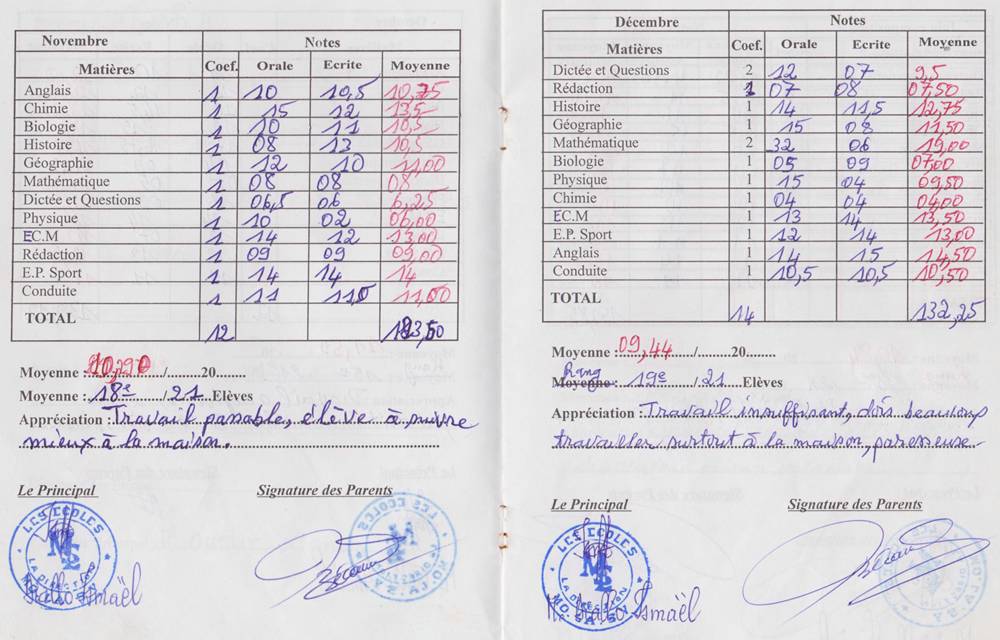 Novembre Notes
Matières Coef. Orale Ecrite Moyenne
Anglais 1 10 10,5 10,25
Chimie 1 15 12 13,5
Biologie 1 10 11 10,5
Histoire 1 08 13 10,5
Géographie 1 12 10 11,00
Mathématique 1 08 08 08
Dictée et Questions 1 06,5 06 6,25
Physique 1 10 02 06,00
EC.M 1 14 12 13,00
Rédaction 1 09 09 09,00
E.P. Sport 1 14 14 14
Conduite 1 11 11,0 11,00
TOTAL
12
Moyenne : /.........20........
Moyenne : 18e / 21 Elèves
Appréciation : Travail passable, élève à suivre
mieux à la maison.
Le Principal Signature des Parents
LES ECOLES
LA DIRECTION
Diallo Ismaël
Décembre Notes
Matières Coef. Orale Ecrite Moyenne
Dictée et Questions 2 12 07 9,5
Rédaction 1 07 08 07,50
Histoire 1 14 11,5 12,75
Géographie 1 15 08 11,50
Mathématique 2 32 06 19,00
Biologie 1 05 09 07,00
Physique 1 15 04 09,50
Chimie 1 04 04 04,00
EC.M 1 13 14 13,50
E.P. Sport 1 12 14 13,00
Anglais 1 14 15 14,50
Conduite 1 10,5 10,5 10,50
TOTAL
14 132,25
Moyenne : 09,44 /.........20........
Rang
Moyenne : 19e / 21 Elèves
Appréciation : Travail insuffisant, dois beaucoup
travailler surtout à la maison, paresseuse
Le Principal Signature des Parents
LES ECOLES
LA DIRECTION
Mr Diallo Ismaël